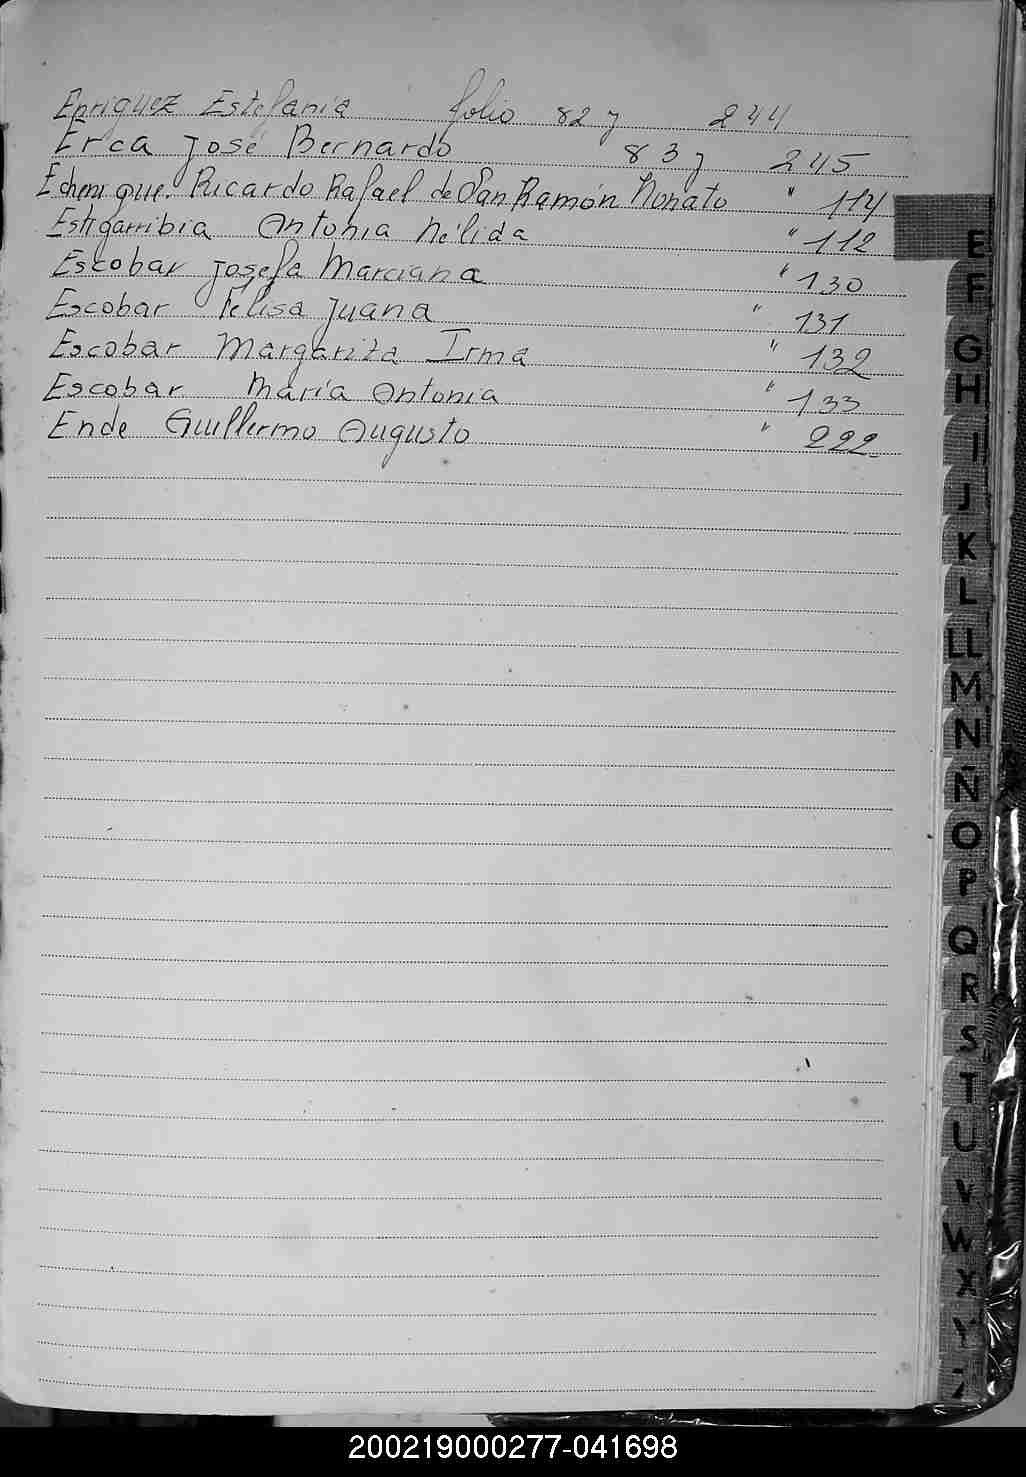 Enriquez Estefania folio 82 y 244
Erca José Bernardo 83 y 245
Echenique. Ricardo Rafael de San Ramón Nonato " 114
Estigarribia Antonia Nélida " 112
Escobar Josefa Marciana " 130
Escobar Felisa Juana " 131
Escobar Margarita Irma " 132
Escobar María Antonia " 133
Ende Guillermo Augusto " 222
E
F
G
H
I
J
K
L
LL
M
N
Ñ
O
P
Q
R
S
T
U
V
W
X
Y
Z
200219000277-041698